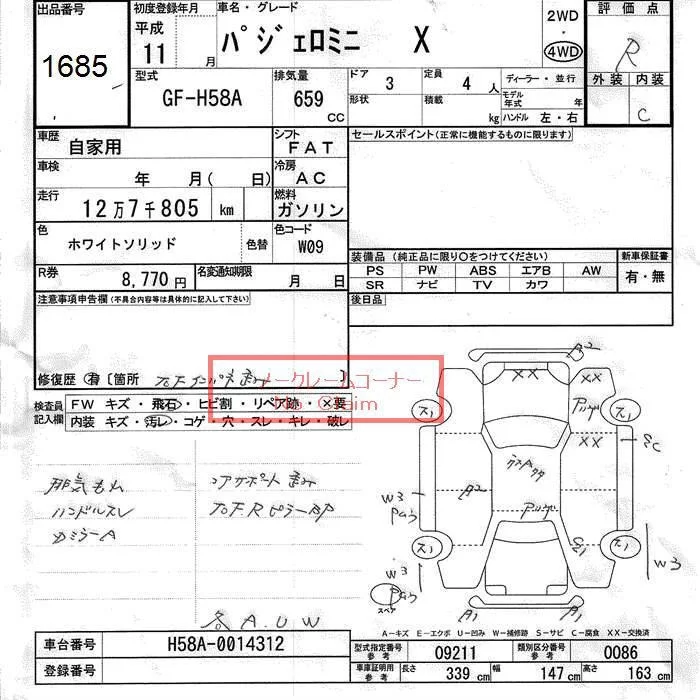 出品番号
1685
初度登録年月
平成
11 月
車名・グレード
パジェロミニ X
2WD
・
4WD
評価点
R
外装 内装
C
型式
GF-H58A
排気量
659
CC
ドア
3
定員
4 人
ディーラー・並行
形状
積載
kg
モデル年式 年
ハンドル 左・右
車歴
自家用
シフト
FAT
セールスポイント(正常に機能するものに限ります)
車検
年 月( 日)
冷房
AC
走行
12万7千805 km
燃料
ガソリン
色
ホワイトソリッド
色替
色コード
W09
装備品(純正品に限り〇をつけてください)
新車保証書
PS PW ABS エアB AW
SR ナビ TV カワ
有・無
R券
8,770円
名変通知期限
月 日
後日品
注意事項申告欄(不具合内容等は具体的に記入して下さい)
修復歴 有 〔箇所 〕
ノークレームコーナー
No Claim
検査員
記入欄
FW キズ・飛石・ヒビ割・リペア跡・×要
内装 キズ・汚レ・コゲ・穴・スレ・キレ・破レ
排気もれ
ハンドルスレ
コアサポート歪み
右FRピラーBP
各A.U.W
A2
XX
XX
XX
ス1
ス1
A2
W3
W3
W3
ス1
ス1
スペア
A1
A1
A-キズ E-エクボ U-凹み W-補修跡 S-サビ C-腐食 XX-交換済
車台番号
H58A-0014312
登録番号
型式指定番号
参考
09211
類別区分番号
参考
0086
車庫証明用
参考
長さ
339 cm
幅
147 cm
高さ
163 cm